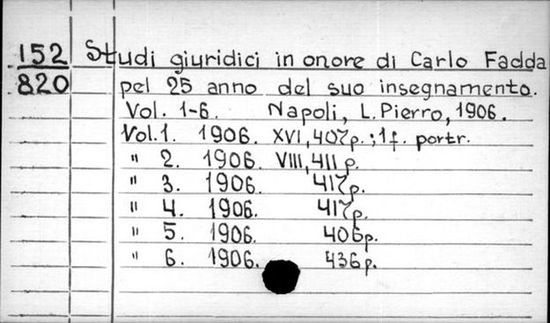 152
820
Studi giuridici in onore di Carlo Fadda
pel 25 anno del suo insegnamento.
Vol. 1-6. Napoli, L. Pierro, 1906.
Vol. 1. 1906. XVI, 407p.; 1f. portr.
" 2. 1906. VIII, 411 p.
" 3. 1906. 417p.
" 4. 1906. 417p.
" 5. 1906. 406p.
" 6. 1906. 436p.